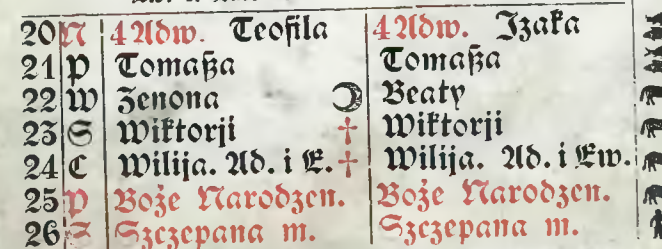 20 N 4 Adw. Teofila 4 Adw. Izaka
21 P Tomaßa Tomaßa
22 W Zenona Beaty
23 S Wiktorji † Wiktorji
24 C Wilija. Ad. i E. † Wilija. Ad. i Ew.
25 P Boże Narodzen. Boże Narodzen.
26 S Szczepana m. Szczepana m.